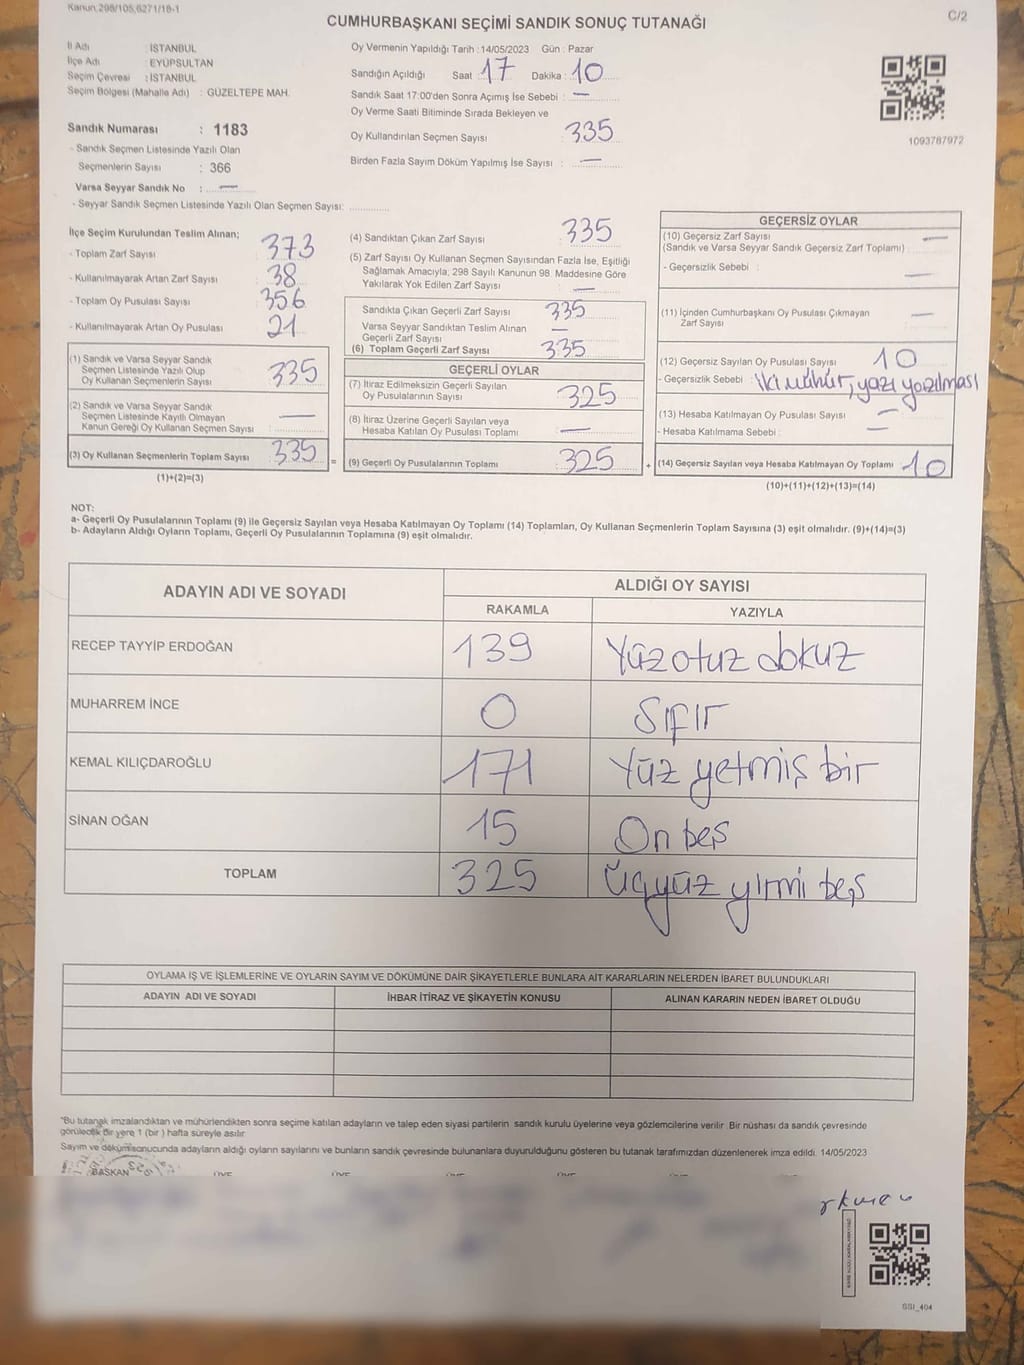 Kanun.298/105,6271/18-1
C/2
CUMHURBAŞKANI SEÇİMİ SANDIK SONUÇ TUTANAĞI
İl Adı : İSTANBUL
İlçe Adı : EYÜPSULTAN
Seçim Çevresi : İSTANBUL
Seçim Bölgesi (Mahalle Adı) : GÜZELTEPE MAH.
Sandık Numarası : 1183
- Sandık Seçmen Listesinde Yazılı Olan
Seçmenlerin Sayısı : 366
Varsa Seyyar Sandık No : —
- Seyyar Sandık Seçmen Listesinde Yazılı Olan Seçmen Sayısı: ..............
Oy Vermenin Yapıldığı Tarih : 14/05/2023 Gün : Pazar
Sandığın Açıldığı Saat : 17 Dakika : 10
Sandık Saat 17:00'den Sonra Açımış İse Sebebi : —
Oy Verme Saati Bitiminde Sırada Bekleyen ve
Oy Kullandırılan Seçmen Sayısı : 335
Birden Fazla Sayım Döküm Yapılmış İse Sayısı : —
1093787972
İlçe Seçim Kurulundan Teslim Alınan;
- Toplam Zarf Sayısı : 373
- Kullanılmayarak Artan Zarf Sayısı : 38
- Toplam Oy Pusulası Sayısı : 356
- Kullanılmayarak Artan Oy Pusulası : 21
(1) Sandık ve Varsa Seyyar Sandık
Seçmen Listesinde Yazılı Olup
Oy Kullanan Seçmenlerin Sayısı : 335
(2) Sandık ve Varsa Seyyar Sandık
Seçmen Listesinde Kayıtlı Olmayan
Kanun Gereği Oy Kullanan Seçmen Sayısı : —
(3) Oy Kullanan Seçmenlerin Toplam Sayısı : 335
(1)+(2)=(3)
=
(4) Sandıktan Çıkan Zarf Sayısı : 335
(5) Zarf Sayısı Oy Kullanan Seçmen Sayısından Fazla İse, Eşitliği
Sağlamak Amacıyla, 298 Sayılı Kanunun 98. Maddesine Göre
Yakılarak Yok Edilen Zarf Sayısı : —
Sandıkta Çıkan Geçerli Zarf Sayısı : 335
Varsa Seyyar Sandıktan Teslim Alınan
Geçerli Zarf Sayısı : —
(6) Toplam Geçerli Zarf Sayısı : 335
GEÇERLİ OYLAR
(7) İtiraz Edilmeksizin Geçerli Sayılan
Oy Pusulalarının Sayısı : 325
(8) İtiraz Üzerine Geçerli Sayılan veya
Hesaba Katılan Oy Pusulası Toplamı : —
(9) Geçerli Oy Pusulalarının Toplamı : 325
+
GEÇERSİZ OYLAR
(10) Geçersiz Zarf Sayısı
(Sandık ve Varsa Seyyar Sandık Geçersiz Zarf Toplamı) : —
- Geçersizlik Sebebi : —
(11) İçinden Cumhurbaşkanı Oy Pusulası Çıkmayan
Zarf Sayısı : —
(12) Geçersiz Sayılan Oy Pusulası Sayısı : 10
- Geçersizlik Sebebi : iki mühür, yazı yazılması
(13) Hesaba Katılmayan Oy Pusulası Sayısı : —
- Hesaba Katılmama Sebebi : —
(14) Geçersiz Sayılan veya Hesaba Katılmayan Oy Toplamı : 10
(10)+(11)+(12)+(13)=(14)
NOT:
a- Geçerli Oy Pusulalarının Toplamı (9) ile Geçersiz Sayılan veya Hesaba Katılmayan Oy Toplamı (14) Toplamları, Oy Kullanan Seçmenlerin Toplam Sayısına (3) eşit olmalıdır. (9)+(14)=(3)
b- Adayların Aldığı Oyların Toplamı, Geçerli Oy Pusulalarının Toplamına (9) eşit olmalıdır.
ADAYIN ADI VE SOYADI ALDIĞI OY SAYISI
RAKAMLA YAZIYLA
RECEP TAYYİP ERDOĞAN 139 Yüz otuz dokuz
MUHARREM İNCE 0 Sıfır
KEMAL KILIÇDAROĞLU 171 Yüz yetmiş bir
SİNAN OĞAN 15 On beş
TOPLAM 325 Üçyüz yirmi beş
OYLAMA İŞ VE İŞLEMLERİNE VE OYLARIN SAYIM VE DÖKÜMÜNE DAİR ŞİKAYETLERLE BUNLARA AİT KARARLARIN NELERDEN İBARET BULUNDUKLARI
ADAYIN ADI VE SOYADI İHBAR İTİRAZ VE ŞİKAYETİN KONUSU ALINAN KARARIN NEDEN İBARET OLDUĞU
"Bu tutanak imzalandıktan ve mühürlendikten sonra seçime katılan adayların ve talep eden siyasi partilerin sandık kurulu üyelerine veya gözlemcilerine verilir. Bir nüshası da sandık çevresinde
görülecek bir yere 1 (bir) hafta süreyle asılır.
Sayım ve döküm sonucunda adayların aldığı oyların sayılarını ve bunların sandık çevresinde bulunanlara duyurulduğunu gösteren bu tutanak tarafımızdan düzenlenerek imza edildi. 14/05/2023
BAŞKAN
SSI_404